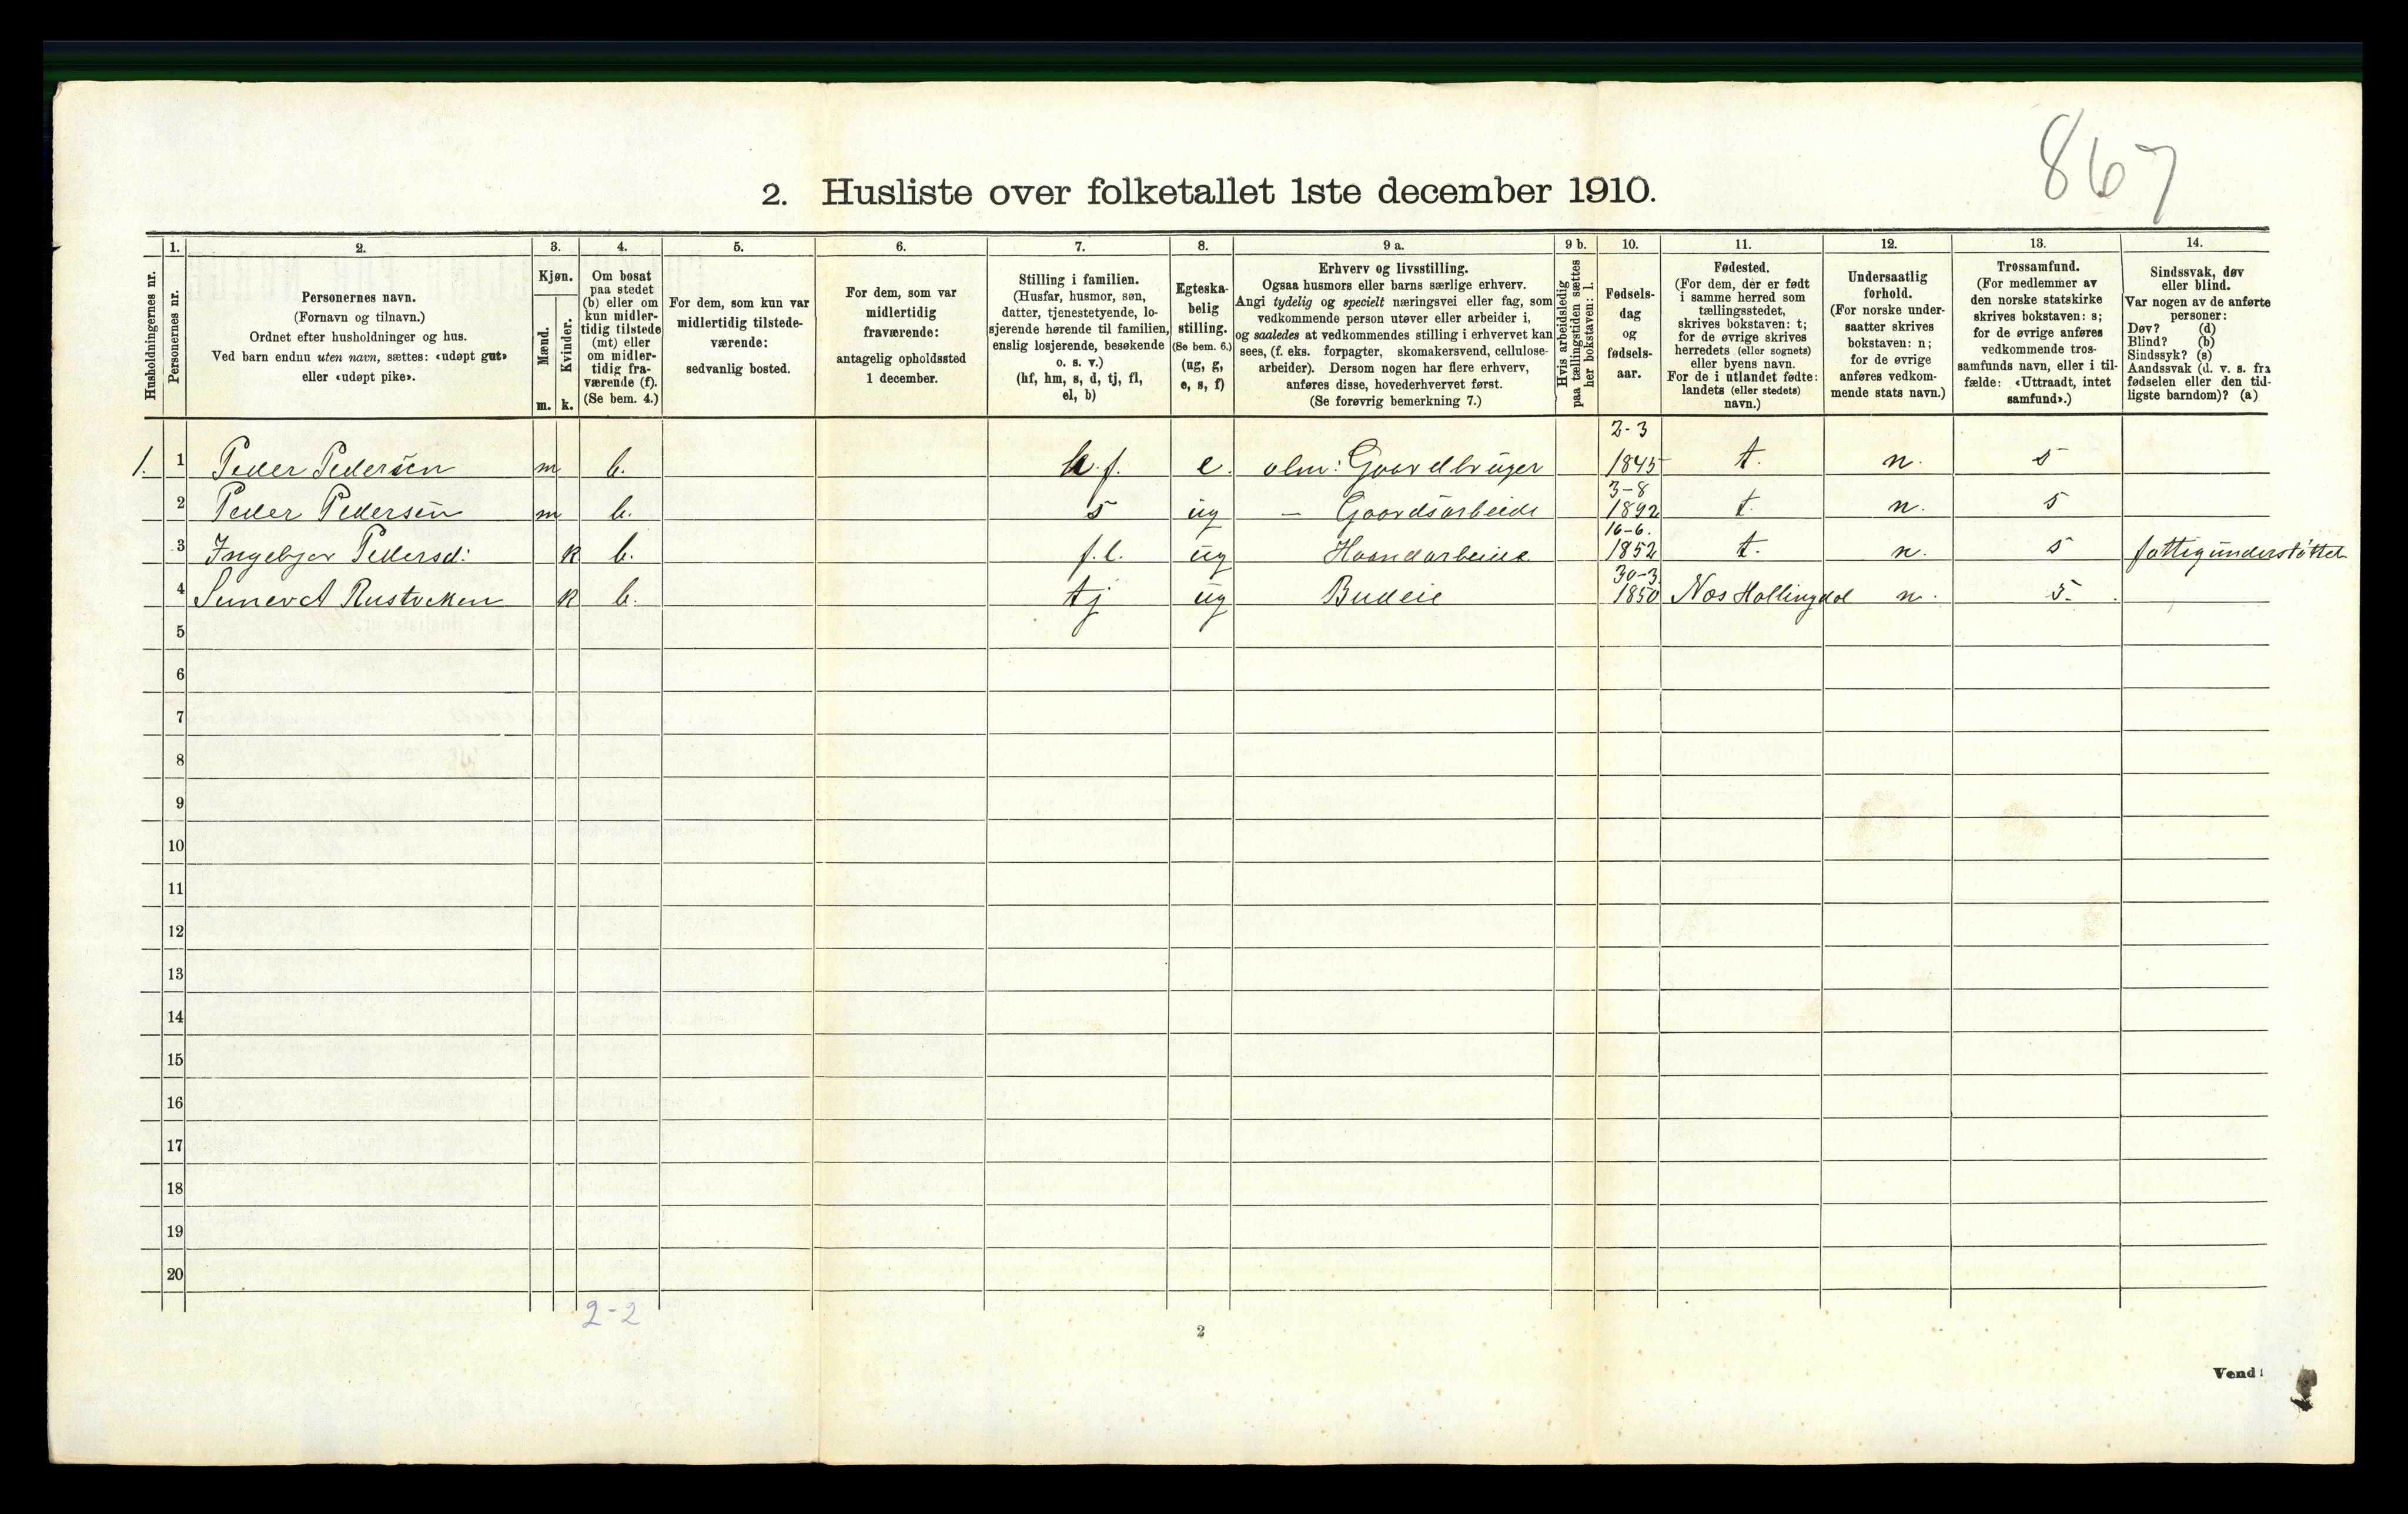 867
2. Husliste over folketallet 1ste december 1910.
Husholdningernes nr.
1.
Personernes nr.
2.
Personernes navn.
(Fornavn og tilnavn.)
Ordnet efter husholdninger og hus.
Ved barn endnu uten navn, sættes: «udøpt gut»
eller «udøpt pike».
3.
Kjøn.
Mænd.
m.
Kvinder.
k.
4.
Om bosat
paa stedet
(b) eller om
kun midler-
tidig tilstede
(mt) eller
om midler-
tidig fra-
værende (f).
(Se bem. 4.)
5.
For dem, som kun var
midlertidig tilstede-
værende:
sedvanlig bosted.
6.
For dem, som var
midlertidig
fraværende:
antagelig opholdssted
1 december.
7.
Stilling i familien.
(Husfar, husmor, søn,
datter, tjenestetyende, lo-
sjerende hørende til familien,
enslig losjerende, besøkende
o. s. v.)
(hf, hm, s, d, tj, fl,
el, b)
8.
Egteska-
belig
stilling.
(Se bem. 6.)
(ug, g,
e, s, f)
9 a.
Erhverv og livsstilling.
Ogsaa husmors eller barns særlige erhverv.
Angi tydelig og specielt næringsvei eller fag, som
vedkommende person utøver eller arbeider i,
og saaledes at vedkommendes stilling i erhvervet kan
sees, (f. eks. forpagter, skomakersvend, cellulose-
arbeider). Dersom nogen har flere erhverv,
anføres disse, hovederhvervet først.
(Se forøvrig bemerkning 7.)
9 b.
Hvis arbeidsledig
paa tællingstiden sættes
her bokstaven: l.
10.
Fødsels-
dag
og
fødsels-
aar.
11.
Fødested.
(For dem, der er født
i samme herred som
tællingsstedet,
skrives bokstaven: t;
for de øvrige skrives
herredets (eller sognets)
eller byens navn.
For de i utlandet fødte:
landets (eller stedets)
navn.)
12.
Undersaatlig
forhold.
(For norske under-
saatter skrives
bokstaven: n;
for de øvrige
anføres vedkom-
mende stats navn.)
13.
Trossamfund.
(For medlemmer av
den norske statskirke
skrives bokstaven: s;
for de øvrige anføres
vedkommende tros-
samfunds navn, eller i til-
fælde: «Uttraadt, intet
samfund».)
14.
Sindssvak, døv
eller blind.
Var nogen av de anførte
personer:
Døv? (d)
Blind? (b)
Sindssyk? (s)
Aandssvak (d. v. s. fra
fødselen eller den tid-
ligste barndom)? (a)
1. 1 Peder Pedersen m b. h.f. e. alm: Gaardbruger 2-3 1845 t. n. s
2 Peder Pedersen m b. s ug — Gaardsarbeide 3-8 1892 t. n. s
3 Ingebjor Pedersd: k b. f.l. ug Haandarbeide 16-6. 1852 t. n. s fattigunderstøttet
4 Rustocken k b. tj ug Budeie 30-3. 1850 Nos Hallingdal n. s.
5
6
7
8
9
10
11
12
13
14
15
16
17
18
19
20
2-2
2
Vend!